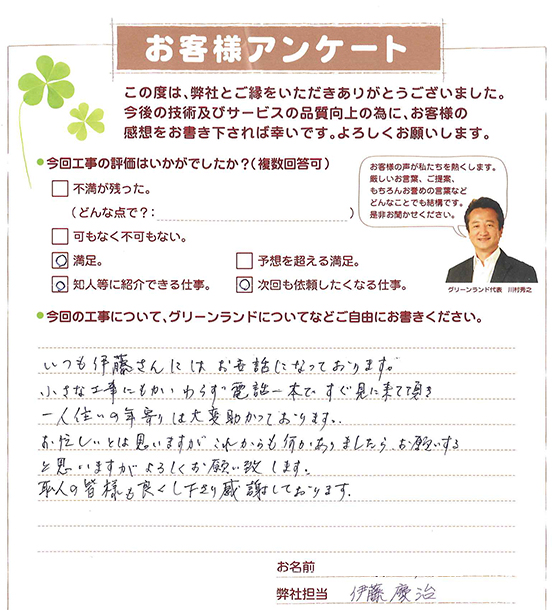 お客様アンケート
この度は、弊社とご縁をいただきありがとうございました。
今後の技術及びサービスの品質向上の為に、お客様の
感想をお書き下されば幸いです。よろしくお願いします。
●今回工事の評価はいかがでしたか?(複数回答可)
不満が残った。
(どんな点で?: )
可もなく不可もない。
○満足。
予想を超える満足。
○知人等に紹介できる仕事。
○次回も依頼したくなる仕事。
お客様の声が私たちを熱くします。
厳しいお言葉、ご提案、
もちろんお誉めの言葉など
どんなことでも結構です。
是非お聞かせください。
グリーンランド代表 川村秀之
●今回の工事について、グリーンランドについてなどご自由にお書きください。
いつも伊藤さんにはお世話になっております。
小さな工事にもかかわらず電話一本で、すぐ見に来て頂き
一人住いの年寄りは大変助かっております。
お忙しいとは思いますがこれからも何かありましたらお願いする
と思いますがよろしくお願い致します。
職人の皆様も良くし下さり感謝しております。
お名前
弊社担当 伊藤慶治